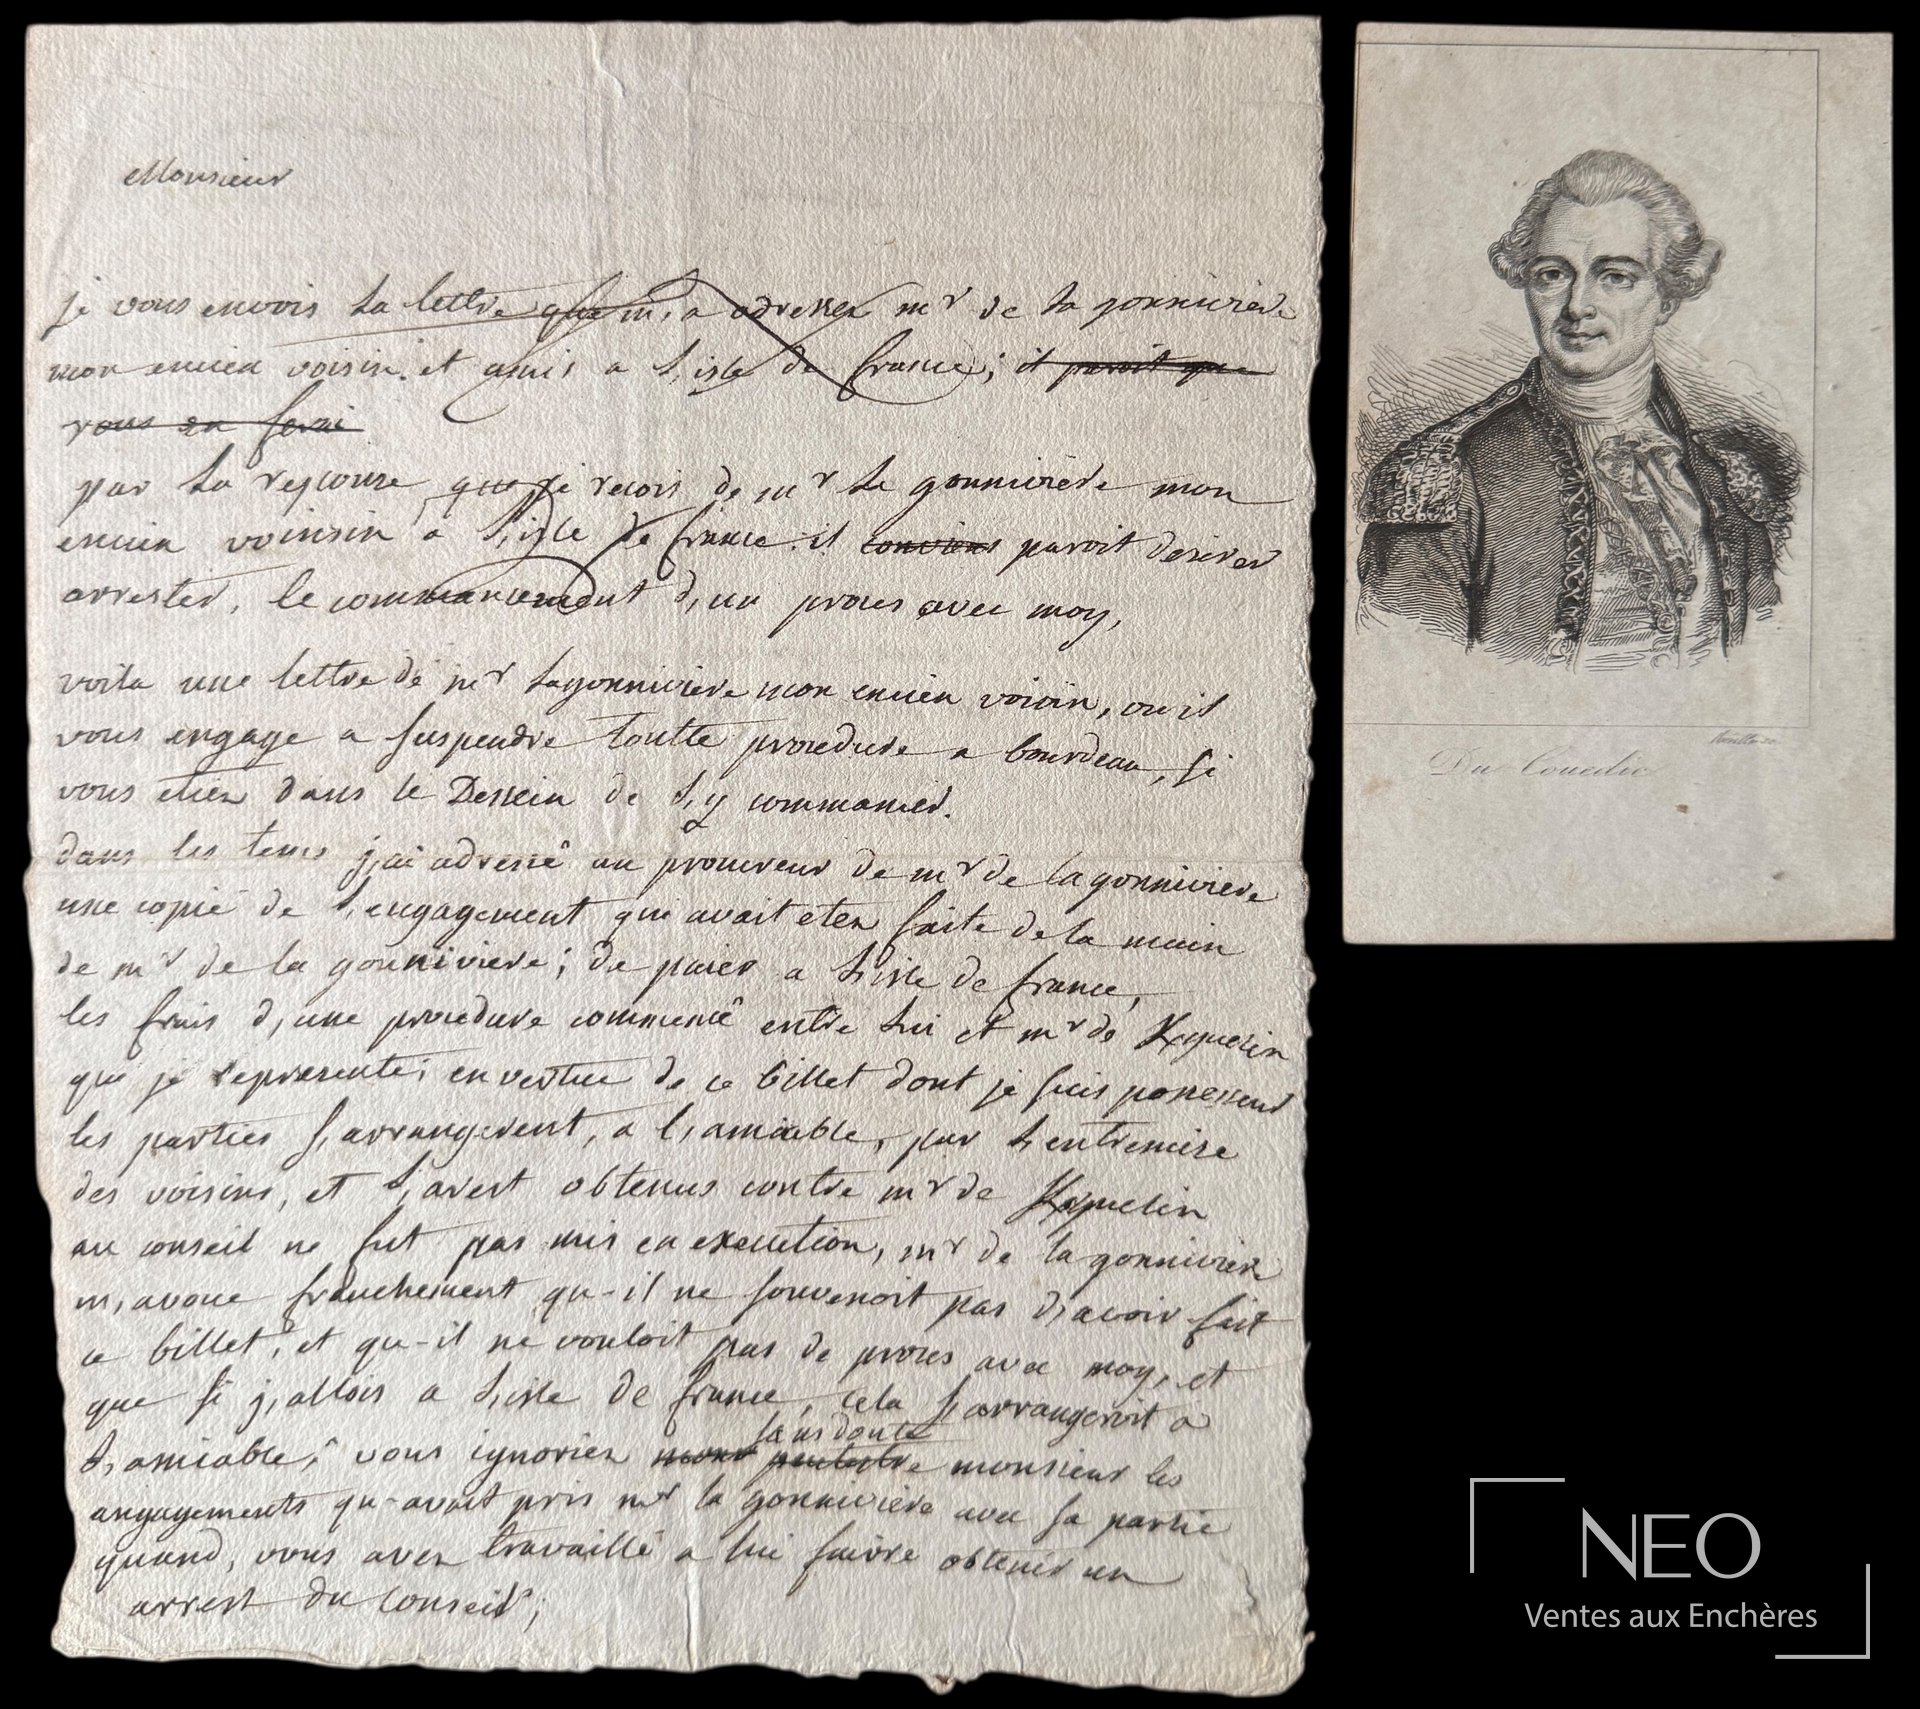 Monsieur
je vous envois la lettre que m,a adressez mr de la gonnivière
mon encien voisin et amis a L,isle de france; il paroit que
vous en
par la reponse que je recois de mr de gonnivière mon
encien voinsin a L,isle de france. il conviens paroit desirer
arrester, le commancement d,un proces avec moy,
voila une lettre de mr Lagonnivière mon encien voisin, ou il
vous engage a suspendre toutte procedure a bourdeau, si
vous etiez dans le Dessein de L,y commancer.
dans les tems j,ai adressé au procureur de mr de la gonniviere
une copie de L,engagement qui avait etez faite de la main
de mr de la gonniviere; de paier a L,isle de france,
les frais d,une procedure commencé entre lui et mr de
que je represente; en vertue de ce billet dont je suis possesseur
les parties s,arrangerent, a l,amiable, par L,entremise
des voisins, et L,arest obtenus contre mr de
au conseil ne fut pas mis en execution, mr de la gonniviere
m,avoue franchement qu-il ne souvenoit pas d,avoir fait
ce billet, et qu-il ne vouloit pas de proces avec moy, et
que si j,allois a L,isle de france, cela s,arrangeroit a
L,amiable; vous ignoriez peutetre sans doute monsieur les
angagements qu-avoit pris mr la gonniviere avec sa partie
quand, vous avez travaillé a lui faire obtenir un
arrest du conseil;
Du Couedic
NEO
Ventes aux Enchères